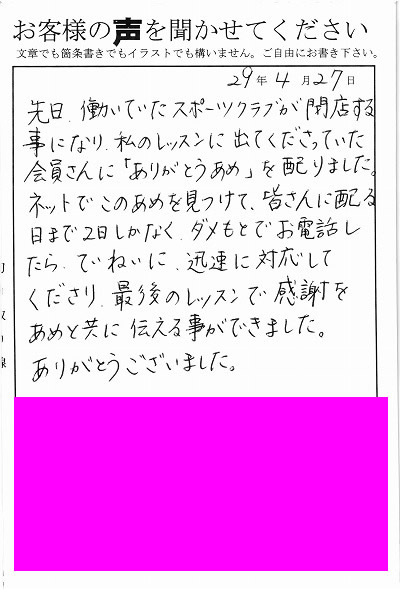 お客様の声を聞かせてください
文章でも箇条書きでもイラストでも構いません。ご自由にお書き下さい。
29年4月27日
先日、働いていたスポーツクラブが閉店する
事になり、私のレッスンに出てくださっていた
会員さんに「ありがとうあめ」を配りました。
ネットでこのあめを見つけて、皆さんに配る
日まで2日しかなく、ダメもとでお電話し
たら、でいねいに、迅速に対応して
くださり、最後のレッスンで感謝を
あめと共に伝える事ができました。
ありがとうございました。